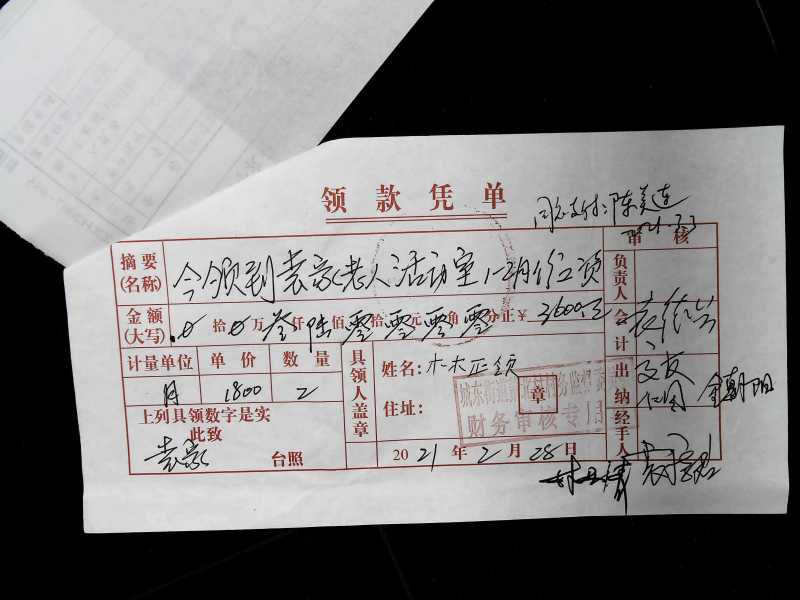 领款凭单
同意支付:陈美连
2021.3.3
摘要(名称) 今领到袁家老人活动室1-2月份工资
审核
负责人
金额(大写) 0拾0万叁仟陆佰零拾零元零角零分正¥3600元
会计
计量单位 单价 数量
月 1800 2
具领人盖章
姓名:林正领
住址:
章
财务审核专用
出纳
金朝阳
上列具领数字是实
此致
袁家 台照
2021年2月28日
经手人